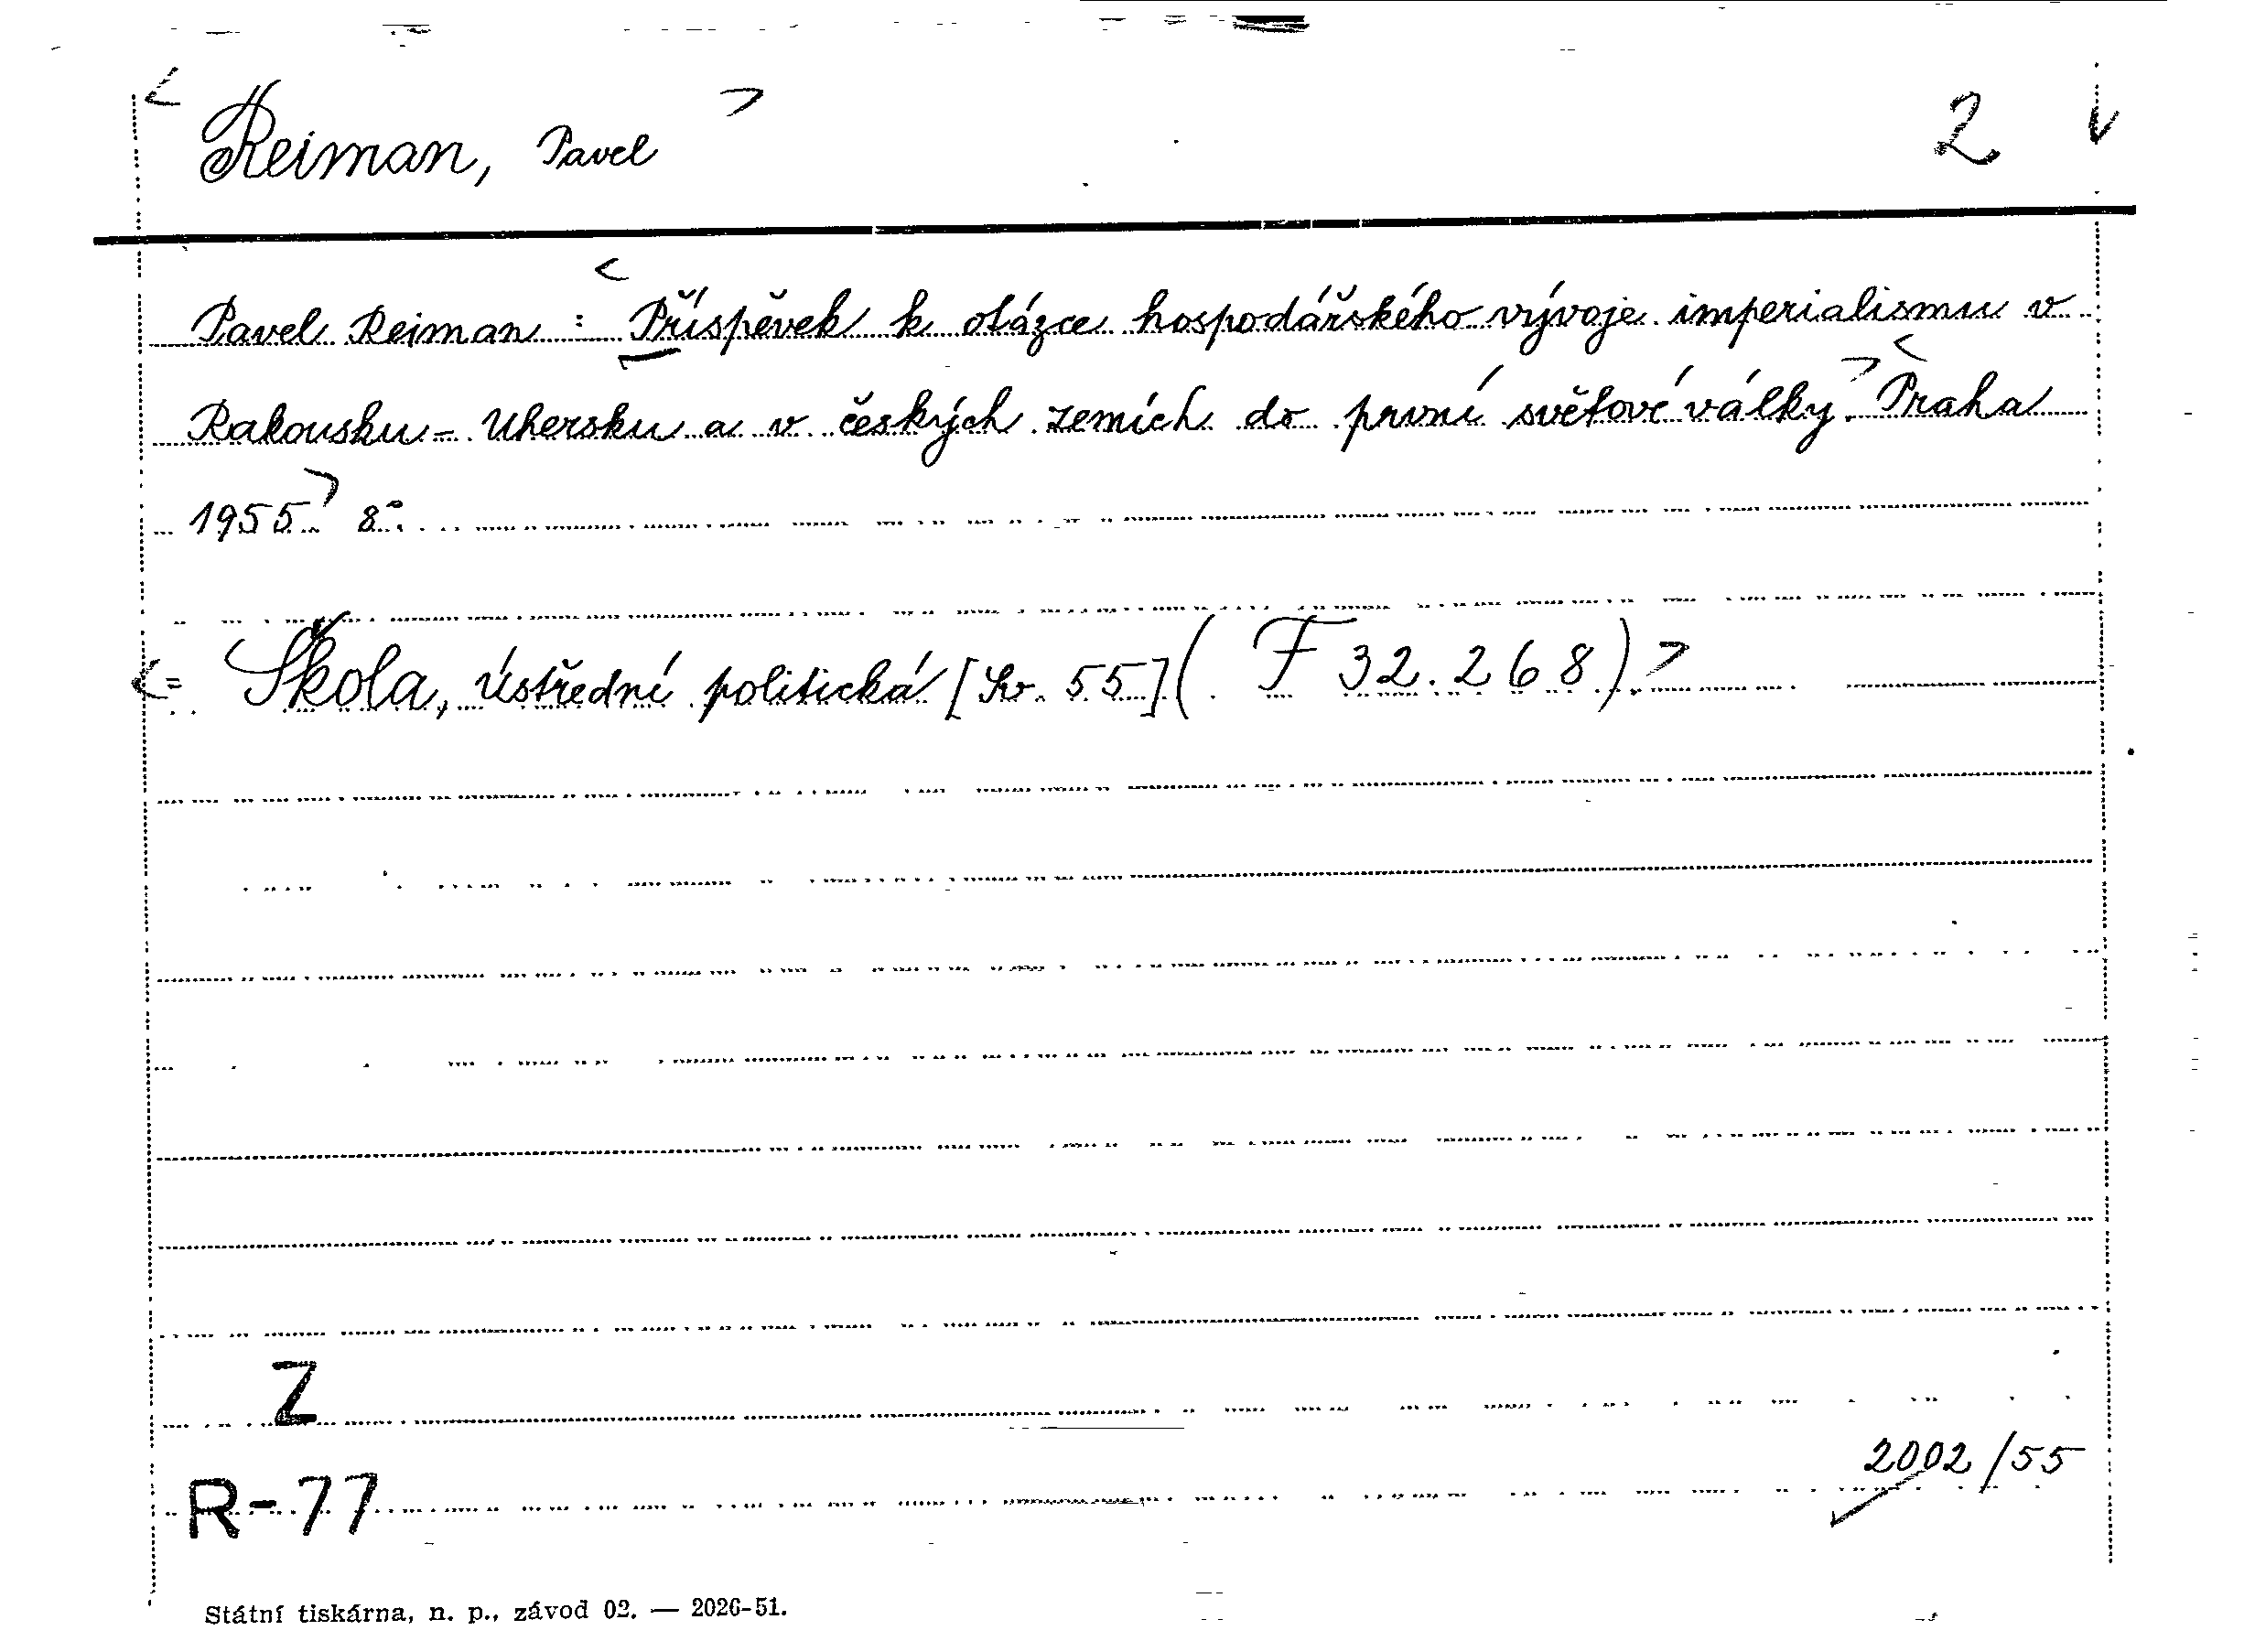 < Reiman, Pavel > 2 v
Pavel Reiman : < Příspěvek k otázce hospodářského vývoje imperialismu v
Rakousku - Uhersku a v českých zemích do první světové války. > < Praha
1955. > 8°.
< = Škola, Ústřední politická [Sv. 55] ( F 32.268 ) >
Z
2002/55
R-77
Státní tiskárna, n. p., závod 02. — 2026-51.